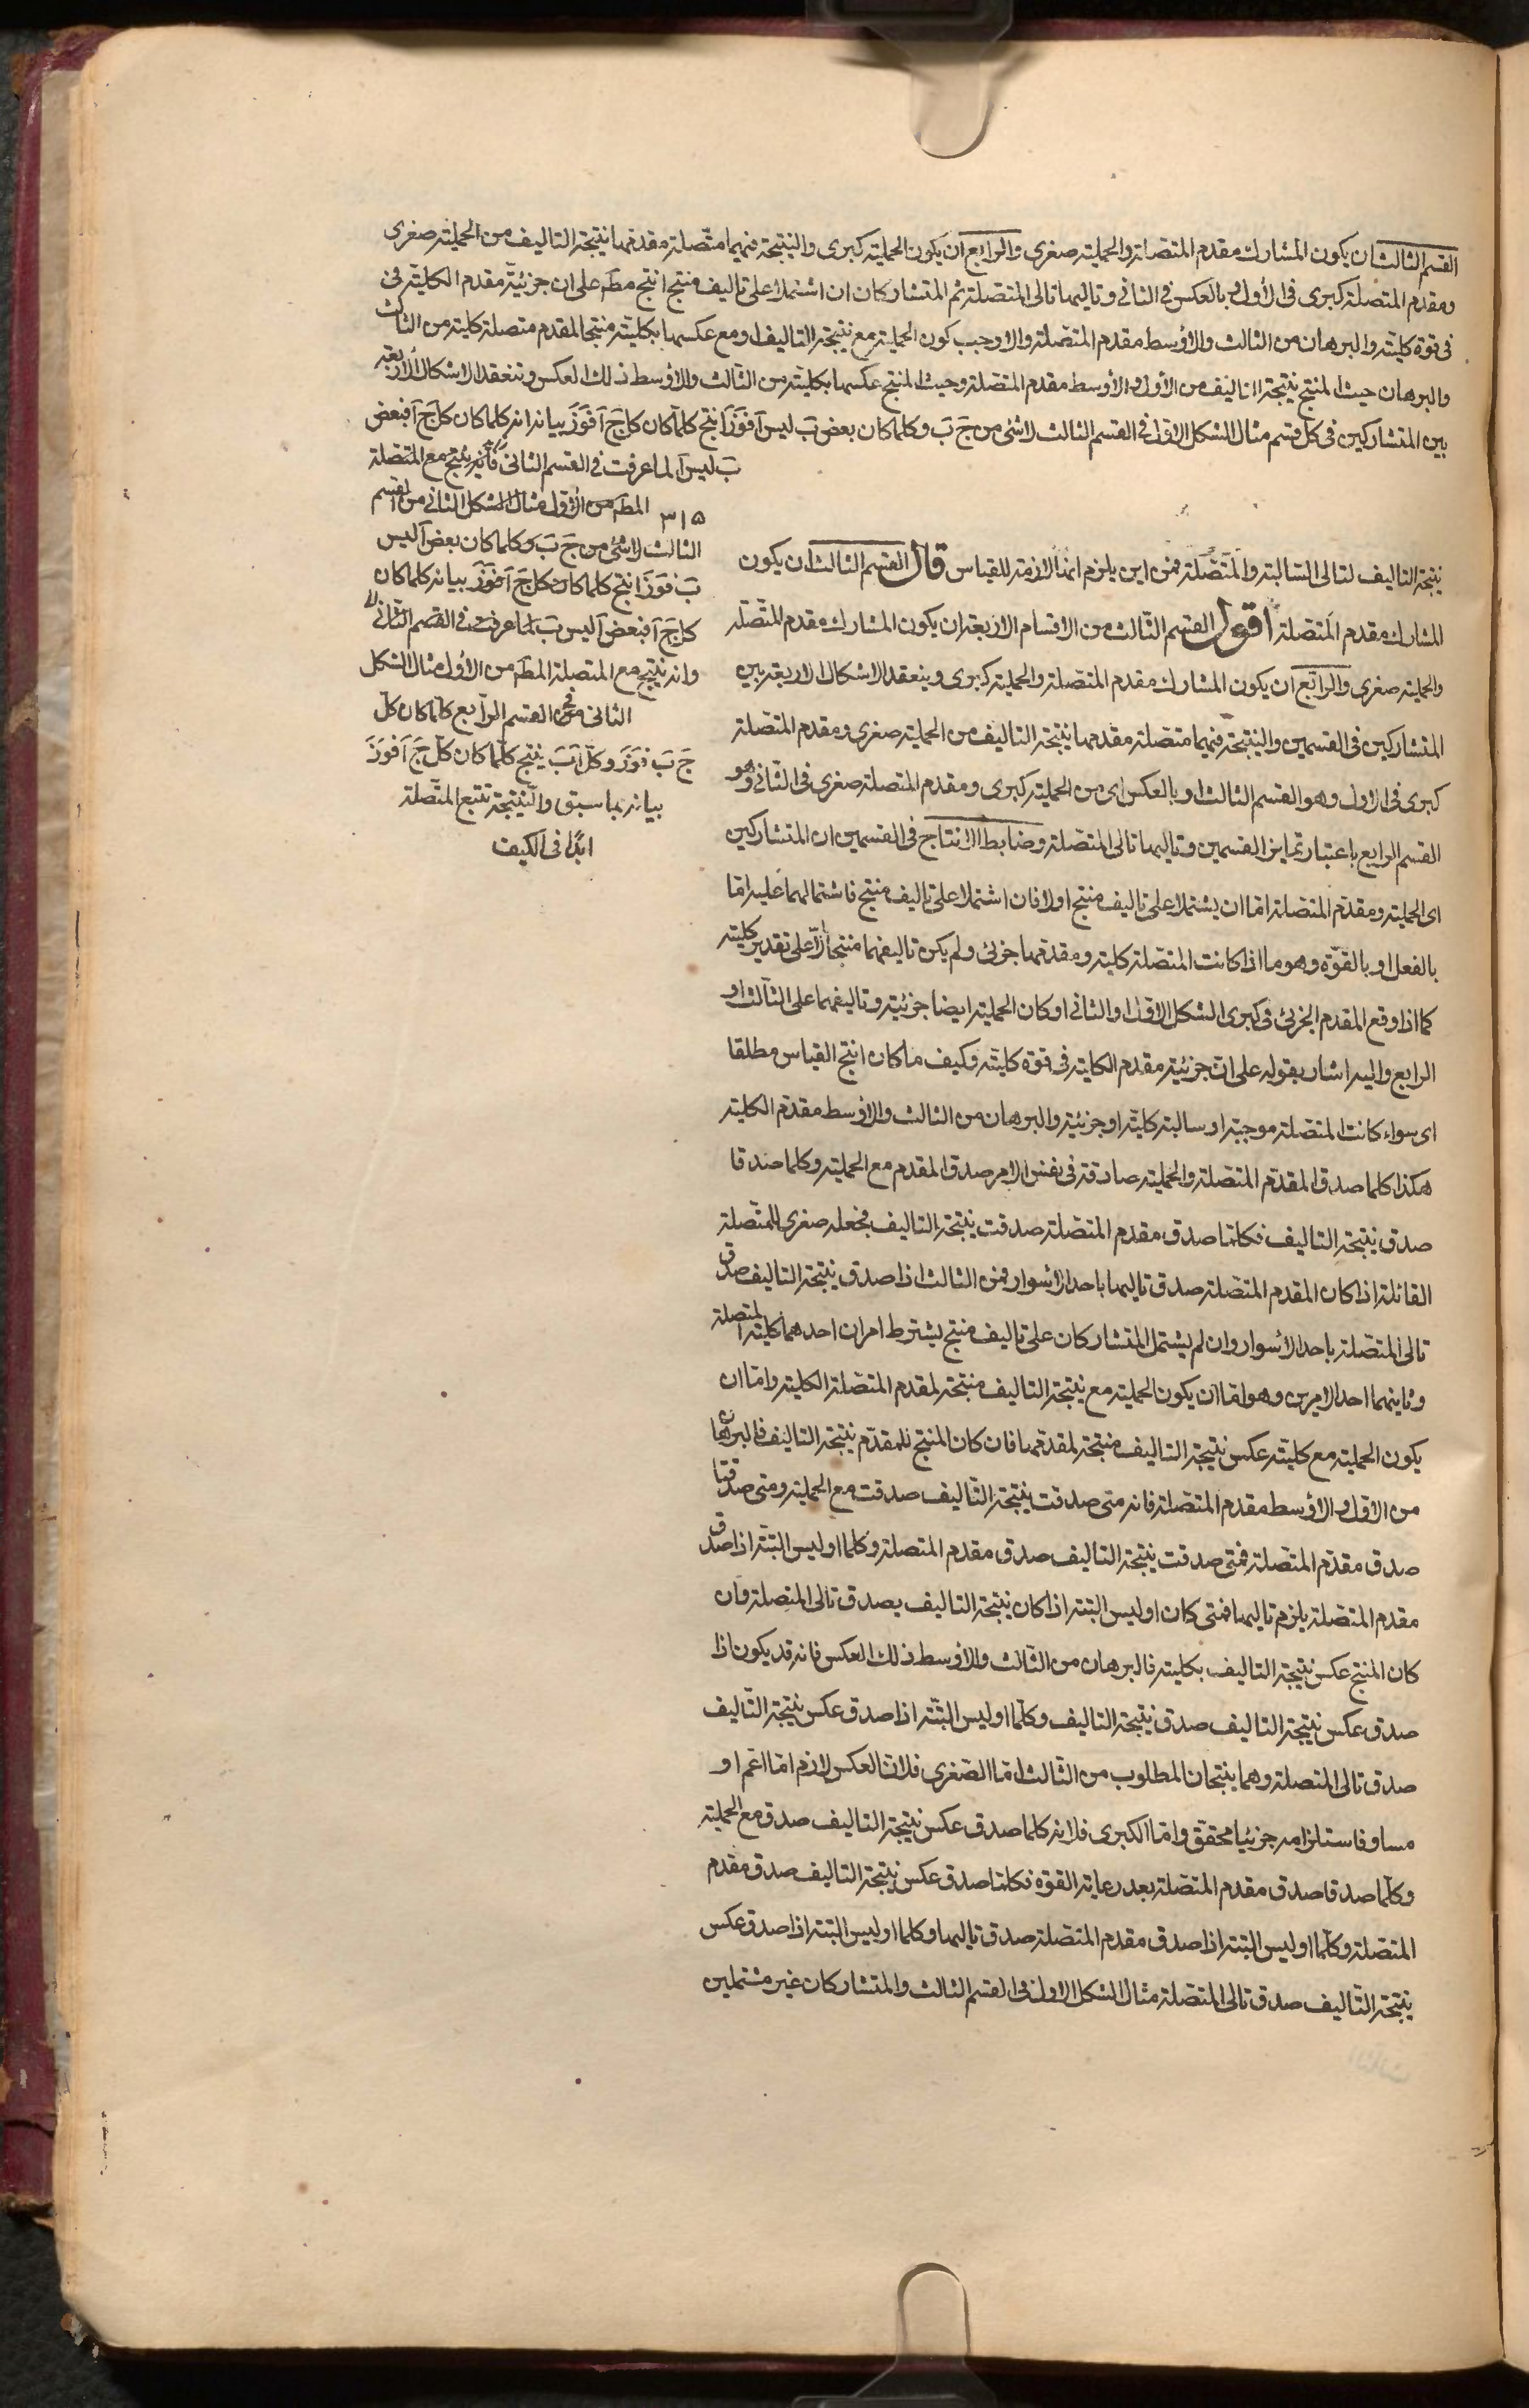 القسم الثالث ان يكون المشارك مقدم المتصلة والحملية صغرى والرابع ان يكون الحملية كبرى والنتيجة فيهما متصلة مقدمها نتيجة التاليف من الحملية صغرى
ومقدم المتصلة كبرى في الاول وبالعكس في الثاني وتاليها تالي المتصلة ثم المتشاركان ان اشتملا على تاليف منتج انتج مط على ان جزئية مقدم الكلية في
في قوة كلية والبرهان من الثالث والاوسط مقدم المتصلة والا وجب كون الحملية مع نتيجة التاليف او مع عكسها بكلية منتجا لمقدم متصلة كلية من الثالث
والبرهان حيث المنتج نتيجة التاليف من الاول والاوسط مقدم المتصلة وحيث المنتج عكسها بكلية من الثالث والاوسط ذلك العكس وتنعقد الاشكال الاربعة
بين المتشاركين في كل قسم مثال الشكل الاول في القسم الثالث لاشئ من ج ب وكلما كان بعض ب ليس آ فوز انتج كلما كان كل ج آ فوز بيانه انه كلما كان كل ج آ فبعض
ب ليس آ لما عرفت في القسم الثاني فانه ينتج مع المتصلة
المط من الاول مثال الشكل الثاني من القسم
٣١٥
الثالث لاشئ من ج ب وكلما كان بعض آ ليس
ب فوز انتج كلما كان كل ج آ فوز بيانه كلما كان
كل ج آ فبعض آ ليس ب لما عرفت في القسم الثاني
وانه ينتج مع المتصلة المط من الاول مثال الشكل
الثاني من القسم الرابع كلما كان كل
ج ب فوز وكل آ ب ينتج كلما كان كل ج آ فوز
بيانه بما سبق والنتيجة تتبع المتصلة
ابدا في الكيف
نتيجة التاليف لتالي السالبة والمتصلة فمن اين يلزم انها لازمة للقياس قال القسم الثالث ان يكون
المشارك مقدم المتصلة اقول القسم الثالث من الاقسام الاربعة ان يكون المشارك مقدم المتصلة
والحملية صغرى والرابع ان يكون المشارك مقدم المتصلة والحملية كبرى وينعقد الاشكال الاربعة بين
المتشاركين في القسمين والنتيجة فيهما متصلة مقدمها نتيجة التاليف من الحملية صغرى ومقدم المتصلة
كبرى في الاول وهو القسم الثالث او بالعكس اي من الحملية كبرى ومقدم المتصلة صغرى في الثاني وهو
القسم الرابع باعتبار تمايز القسمين وتاليها تالي المتصلة وضابط الانتاج في القسمين ان المتشاركين
اي الحملية ومقدم المتصلة اما ان يشتملا على تاليف منتج او لا فان اشتملا على تاليف منتج فاشتمالهما عليه اما
بالفعل او بالقوة وهو ما اذا كانت المتصلة كلية ومقدمها جزئي ولم يكن تاليفهما منتجا الا على تقدير كلية
كما اذا وقع المقدم الجزئي في كبرى الشكل الاول او الثاني او كان الحملية ايضا جزئية وتاليفهما على الثالث او
الرابع واليه اشار بقوله على ان جزئية مقدم الكلية في قوة كلية وكيف ما كان انتج القياس مطلقا
اى سواء كانت المتصلة موجبة او سالبة كلية او جزئية والبرهان من الثالث والاوسط مقدم الكلية
هكذا كلما صدق المقدم المتصلة والحملية صادقة في نفس الامر صدق المقدم مع الحملية وكلما صدقا
صدق نتيجة التاليف فكلما صدق مقدم المتصلة صدقت نتيجة التاليف فنجعله صغرى للمتصلة
القائلة اذا كان المقدم المتصلة صدق تاليها باحد الاسوار فمن الثالث اذا صدق نتيجة التاليف صدق
تالي المتصلة باحد الاسوار وان لم يشتمل المتشاركان على تاليف منتج يشترط امران احدهما كلية المتصلة
وثانيهما احد الامرين وهو اما ان يكون الحملية مع نتيجة التاليف منتجة لمقدم المتصلة الكلية واما ان
يكون الحملية مع كلية عكس نتيجة التاليف منتجة لمقدمها فان كان المنتج للمقدم نتيجة التاليف فالبرهان
من الاول والاوسط مقدم المتصلة فانه متى صدقت نتيجة التاليف صدقت مع الحملية ومتى صدقتا
صدق مقدم المتصلة فمتى صدقت نتيجة التاليف صدق مقدم المتصلة وكلما او ليس البتة اذا صدق
مقدم المتصلة يلزم تاليها فمتى كان او ليس البتة اذا كان نتيجة التاليف يصدق تالي المتصلة وان
كان المنتج عكس نتيجة التاليف بكلية فالبرهان من الثالث والاوسط ذلك العكس فانه قد يكون اذا
صدق عكس نتيجة التاليف صدق نتيجة التاليف وكلما او ليس البتة اذا صدق عكس نتيجة التاليف
صدق تالي المتصلة وهما ينتجان المطلوب من الثالث اما الصغرى فلان العكس لازم اما اعم او
مساو فاستلزامه جزئيا محقق واما الكبرى فلانه كلما صدق عكس نتيجة التاليف صدق مع الحملية
وكلما صدقا صدق مقدم المتصلة بعد رعاية القوة فكلما صدق عكس نتيجة التاليف صدق مقدم
المتصلة وكلما او ليس البتة اذا صدق مقدم المتصلة صدق تاليها وكلما او ليس البتة اذا صدق عكس
نتيجة التاليف صدق تالي المتصلة مثال الشكل الاول في القسم الثالث والمتشاركان غير مشتملين